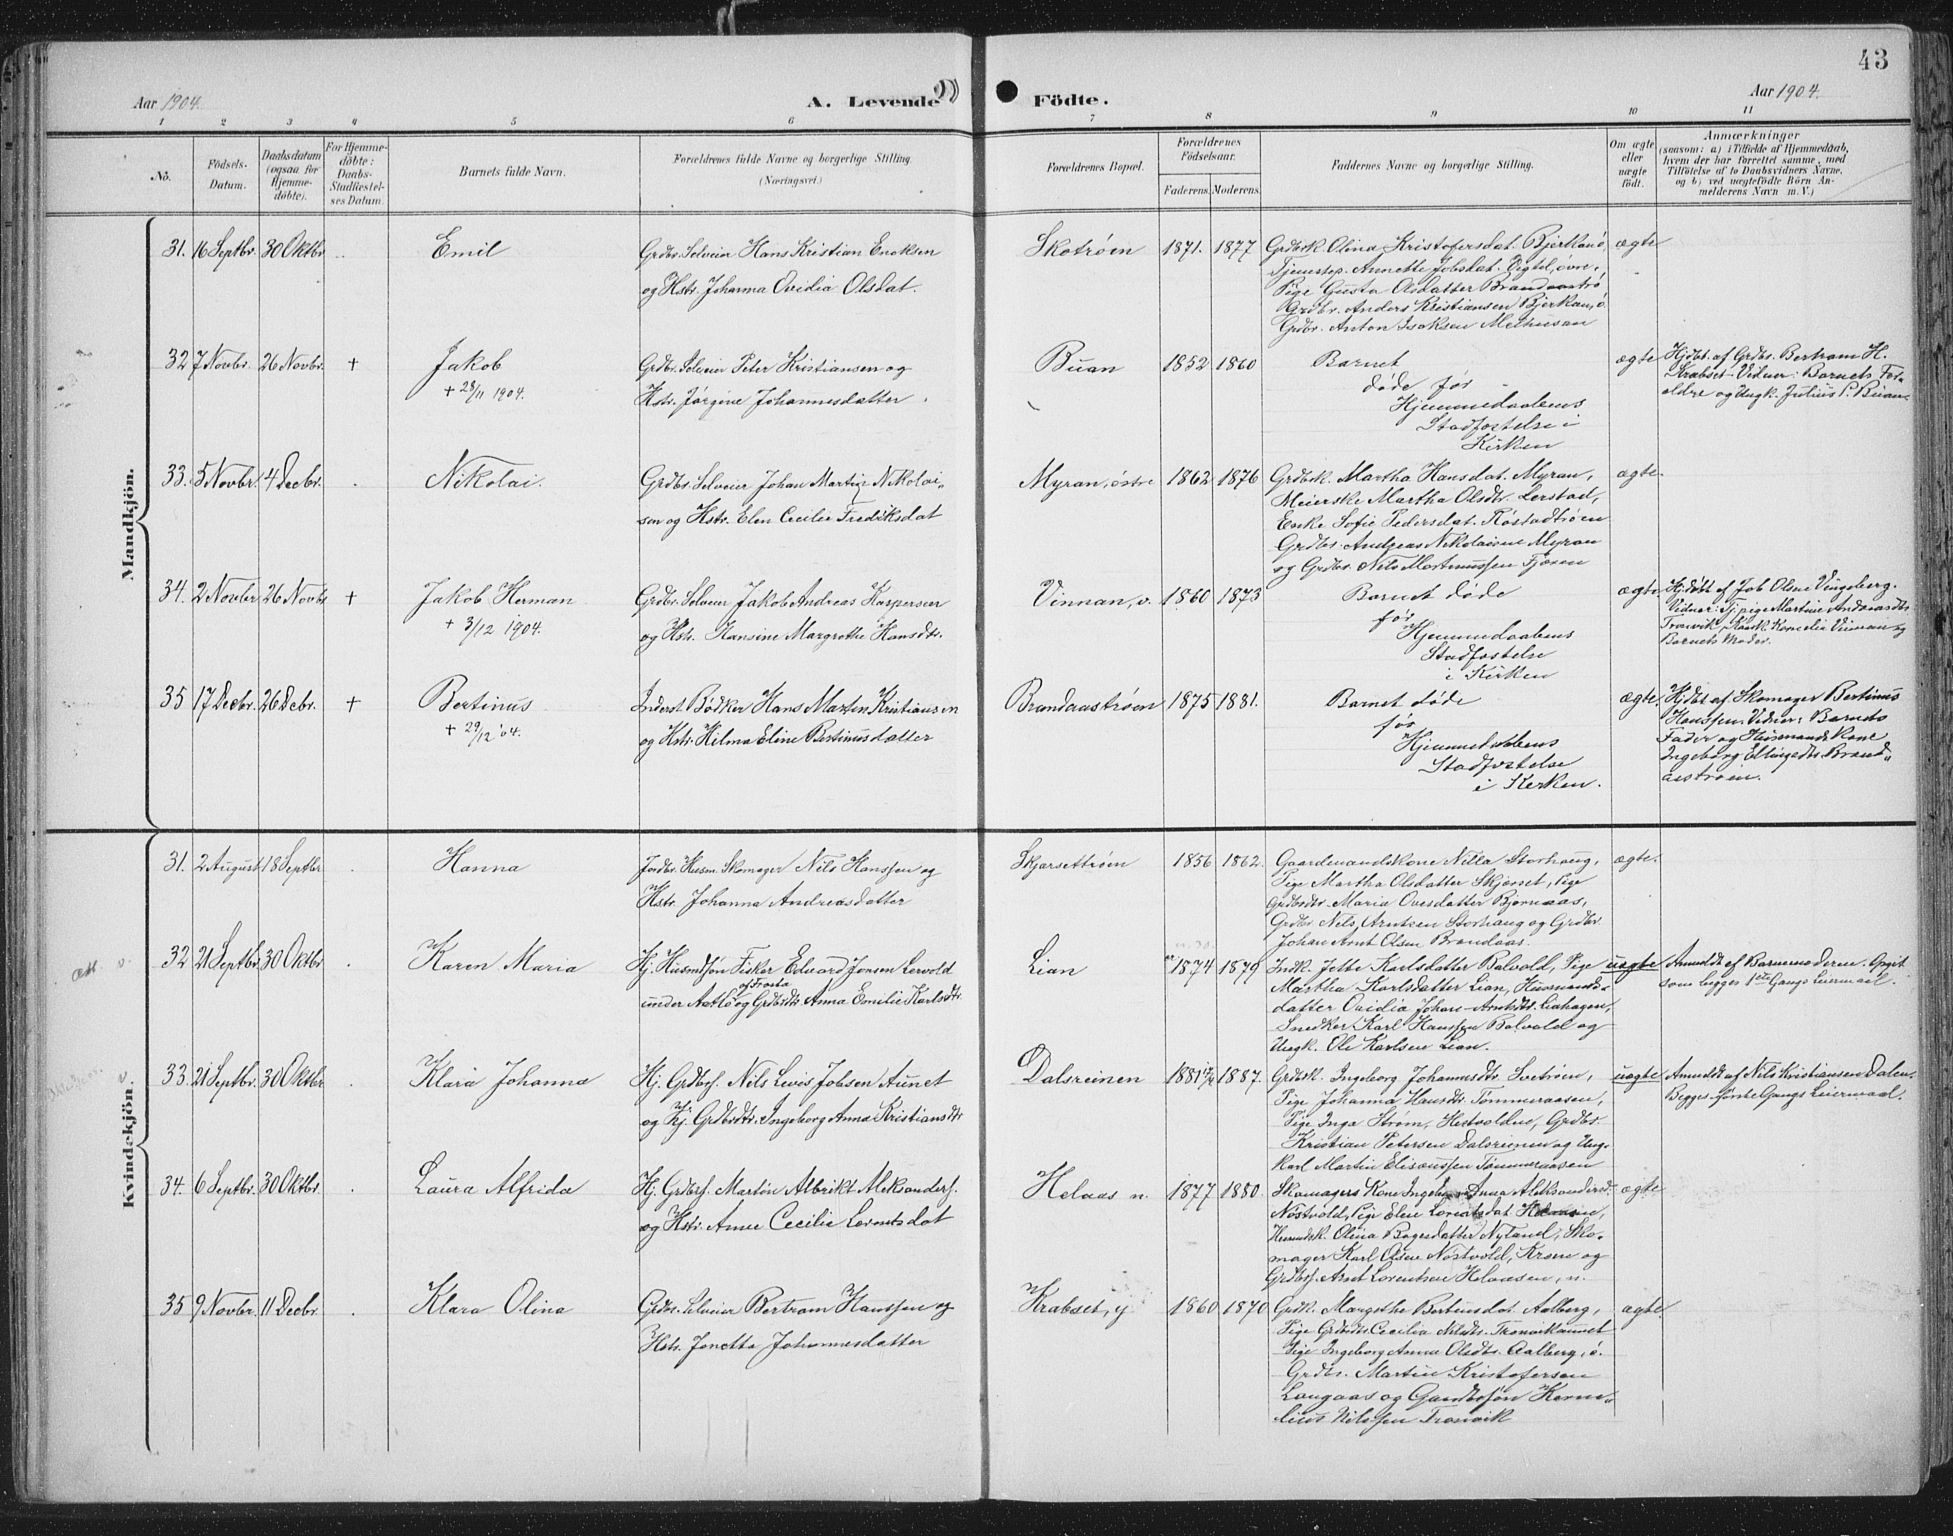 43
Aar 1904.
A. Levende
Födte.
Aar 1904.
1 2 3 4 5 6 7 8 9 10 11
No.
Födsels-Datum.
Daabsdatum (ogsaa for Hjemme-döbte).
For Hjemme-döbte: Daabs-Stadfæstel-ses Datum.
Barnets fulde Navn.
Forældrenes fulde Navne og borgerlige Stilling.
(Næringsvei.)
Forældrenes Bopæl.
Forældrenes Födselsaar.
Faderens. Moderens.
Faddernes Navne og borgerlige Stilling.
Om ægte eller uægte födt.
Anmærkninger
(saasom: a) i Tilfælde af Hjemmedaab,
hvem der har forrettet samme, med
Tilföielse af to Daabsvidners Navne,
og b) ved uægtefödte Börn An-
melderens Navn m. V.)
Mandkjön.
31. 16 Septbr. 30 Oktbr. Emil
Grdbr. Selveier Hans Kristian Enoksen
og Hstr. Johanna Ovidia Olsdat.
Skotrøen 1871. 1877
Grdbrk. Olina Kristofersdat. Bjerkan, ø
Tjenestep. Annette Jobsdat. Vigtel, øvre,
Pige Gusta Olsdatter Brandaastrø
Grdbr. Anders Kristiansen Bjerkan, ø
Grdbr. Anton Isaksen Melhusan
ægte
32 7 Novbr. 26 Novbr. + Jakob
+ 28/11 1904.
Grdbr. Selveier Peter Kristiansen og
Hstr. Jørgine Johannesdatter.
Buan 1852 1860
Barnet
døde før
Hjemmedaabens
Stadfæstelse i
Kirken
ægte
Hjdøbt. af Grdbr. Bertram H.
Krabset. Vidner: Barnets For-
ældre og Ungk. Julius P. Buan.
33. 5 Novbr. 4 Decbr. Nikolai.
Grdbr. Selveier Johan Martin Nikolai-
sen og Hstr. Elen Cecilie Fredriksdat
Myran, østre 1862 1876
Grdbrk. Martha Hansdat. Myran,
Meierske Martha Olsdtr. Lerstad,
Enke Sofie Pedersdat. Røstadtrøen
Grdbr. Andreas Nikolaisen Myran
og Grdbr. Nils Martinussen Tjøren
ægte.
34. 2 Novbr 26 Novbr + Jakob Herman
+ 3/12 1904.
Grdbr. Selveier Jakob Andreas Kaspersen
og Hstr. Hansine Margrethe Hansdtr.
Vinnan, v. 1860 1873
Barnet døde
før
Hjemmedaabens
Stadfæstelse
i Kirken
ægte
Hjdøbt af Job Olsen Vingsberg.
Vidner: Tj.pige Martine Andreasdtr.
Tronvik, Kaark. Kornelia Vinnan og
Barnets Moder.
35 17 Decbr. 26 Decbr. + Bertinus
+ 29/12 '04.
Inderst Bødker Hans Martin Kristiansen
og Hstr. Hilma Eline Bertinusdatter
Brandaastrøen 1875 1881.
Barnet døde
før
Hjemmedaabens
Stadfæstelse
i Kirken.
ægte.
Hjdøbt af Skomager Bertinus
Hanssen. Vidner: Barnets
Fader og Husmandskone
Ingeborg Ellingsdtr. Brand-
aastrøen.
Kvindekjön.
31. 2 August 18 Septbr. Hanna
Jordbr. Husm. Skomager Nils Hanssen og
Hstr. Johanna Andreasdatter
Skjærsettrøen 1856 1862.
Gaardmandskone Nilla Storhaug,
Pige Martha Olsdatter Skjerset, Pige
Grdbrdtr. Maria Ovesdatter Bjørnaas,
Grdbr. Nils Arntsen Storhaug og Grdbr
Johan Arnt Olsen Brandaas.
ægte.
32 21 Septbr. 30 Oktbr. Karen Maria
Hj. Husmdsøn Fisker Edvard Jonsen Lervold
under Aatlø af Frosta og Grdbrdtr. Anna Emilie Karlsdtr.
Lian 1874 1879
Indk. Jette Karlsdatter Balvold, Pige
Marthea Karlsdatter Lian, Husmands-
datter Ovidia Johan-Arntsdtr. Liahagen,
Snedker Karl Hanssen Balvold og
Ungk. Ole Karlsen Lian.
uægte
Anmeldt af Barnemoderen. Opgit
som begges 1ste Gangs Leiermaal.
33. 21 Septbr. 30 Oktbr Klara Johanna
Hj. Grdbrs. Nils Lewis Jobsen Aunet
og Hj. Grdbrdtr. Ingeborg Anna Kristiansdtr.
Dalsreinen 1881 1887.
Grdbrk. Ingeborg Johannesdtr. Svetrøen,
Pige Johanna Hansdtr. Tømmeraasen,
Pige Inga Strøm, Hestvolden, Grdbr.
Kristian Petersen Dalsreinen og Ung-
karl Martin Eliseussen Tømmeraasen
uægte
Anmeldt af Nils Kristiansen Dalen.
Begges første Gangs Leiermaal.
34. 6 Septbr. 30 Oktbr. Laura Alfrida
Hj. Grdbrs. Martin Albrikt Aleksanders.
og Hstr. Anne Cecilie Lorentsdat
Helaas n. 1877 1880.
Skomagers Kone Ingeborg Anna Aleksandersd.
Nøstvold, Pige Elen Lorentsdat Helaasen,
Husmdsk. Olina Bagesdatter Nyland, Sko-
mager Karl Olsen Nøstvold, Kroen og
Grdbrs. Arnt Lorentsen Helaasen, n.
ægte
35 9 Novbr. 11 Decbr. Klara Olina
Grdbr. Selveier Bertram Hanssen og
Hstr. Jonetta Johannesdatter
Krabset, y 1860 1870
Grdk. Margrethe Bertinusdat. Aalberg,
Pige Grdbrdtr. Cecilia Nilsdtr. Tronvikaunet
Pige Ingeborg Anna Olsdtr. Aalberg, ø.
Grdbr. Martin Kristofersen
Langaas og Gaardbrsøn Korne-
lius Nilssen Tronvik
ægte.